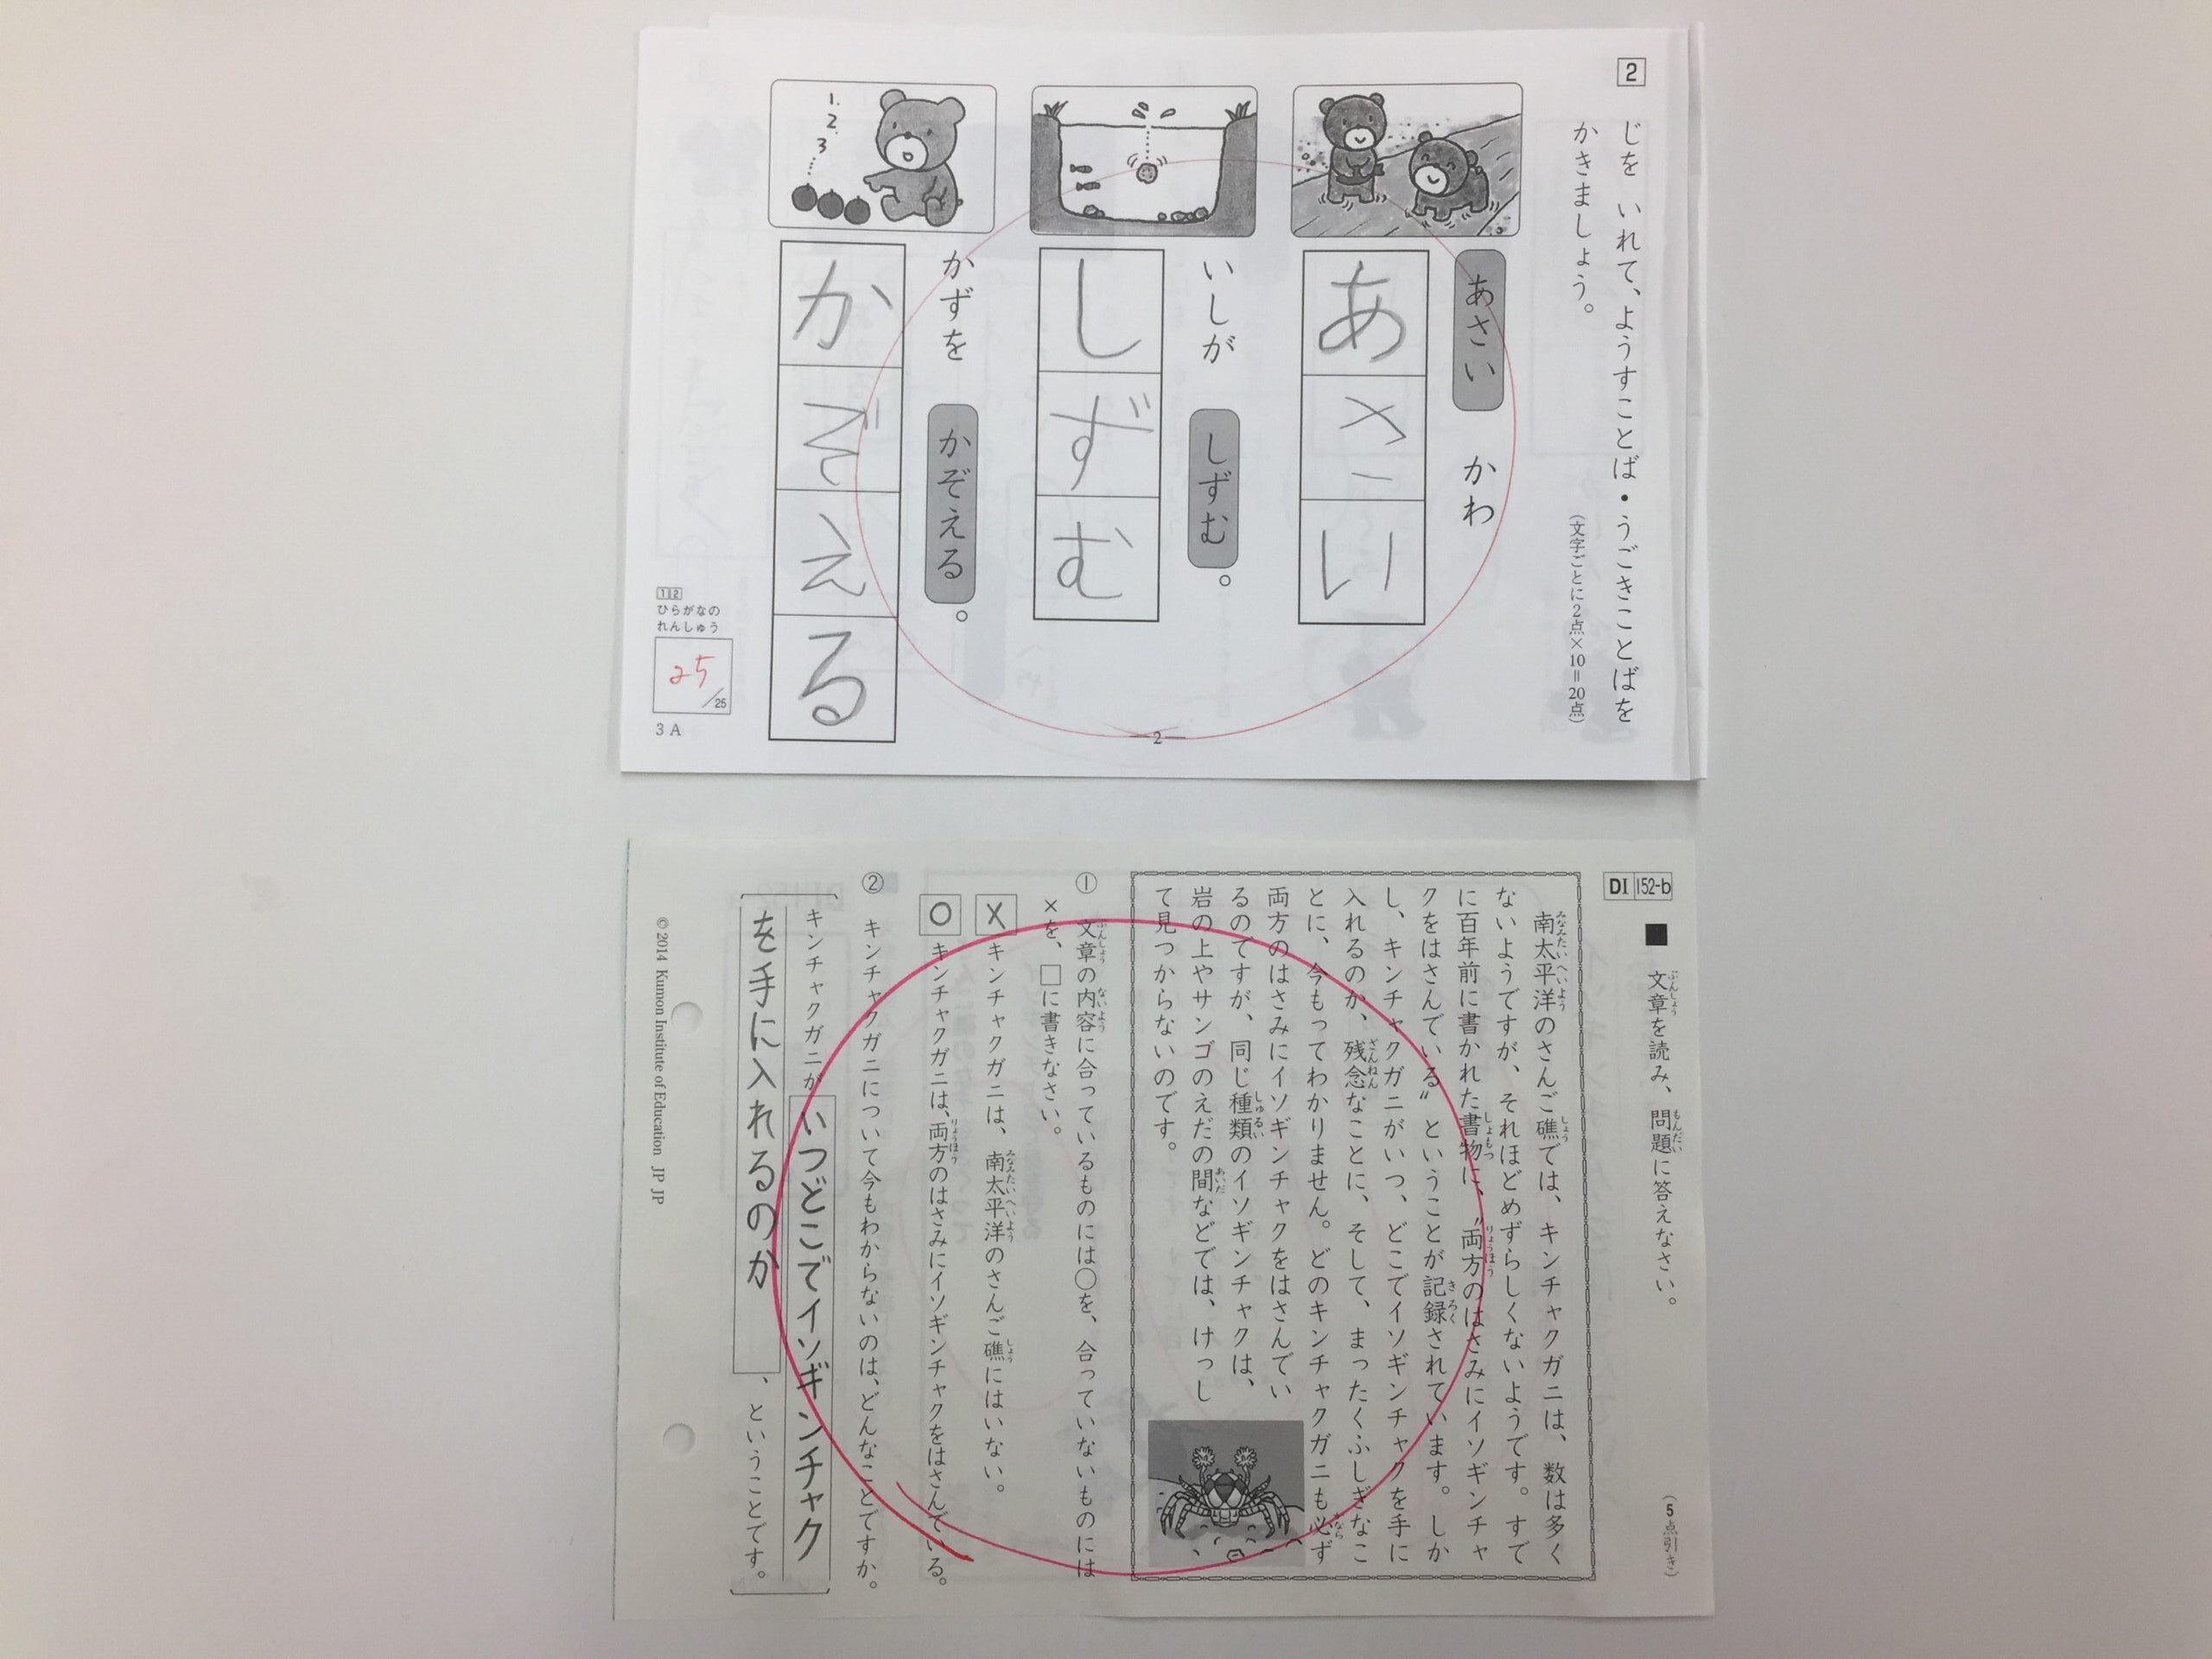 2
じを いれて、ようすことば・うごきことばを
かきましょう。
(文字ごとに2点×10=20点)
あさい かわ
あさい
いしが しずむ。
しずむ
1.
2.
3
かずを かぞえる。
かぞえる
12
ひらがなの
れんしゅう
25
/25
3 A
—2—
DI 152-b
■ 文章を読み、問題に答えなさい。
ぶんしょう
もんだい
(5点引き)
南太平洋のさんご礁では、キンチャクガニは、数は多く
みなみたいへいよう
しょう
ないようですが、それほどめずらしくないようです。すで
に百年前に書かれた書物に、〝両方のはさみにイソギンチャ
しょもつ
りょうほう
クをはさんでいる〟ということが記録されています。しか
きろく
し、キンチャクガニがいつ、どこでイソギンチャクを手に
入れるのか、残念なことに、そして、まったくふしぎなこ
ざんねん
とに、今もってわかりません。どのキンチャクガニも必ず
かなら
両方のはさみにイソギンチャクをはさんでい
るのですが、同じ種類のイソギンチャクは、
しゅるい
岩の上やサンゴのえだの間などでは、けっし
あいだ
て見つからないのです。
① 文章の内容に合っているものには○を、合っていないものには
ぶんしょう
ないよう
×を、□に書きなさい。
× キンチャクガニは、南太平洋のさんご礁にはいない。
みなみたいへいよう
しょう
○ キンチャクガニは、両方のはさみにイソギンチャクをはさんでいる。
りょうほう
② キンチャクガニについて今もわからないのは、どんなことですか。
キンチャクガニが いつどこでイソギンチャク
を手に入れるのか 、ということです。
© 2014 Kumon Institute of Education JP JP